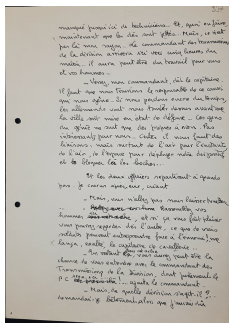 manqué jusqu'ici de techniciens. Et, qu'en faire,
maintenant que les dés sont jetés. Mais, ce n'est
pas là mon rayon. Le commandant des transmissions
de la division arrivera ici vers cinq heures du
matin. Il aura peut être du travail pour vous
et vos hommes.
- Venez, mon commandant, dit le capitaine.
Il faut que nous trouvions le responsable de ce
que nous offre. Si nous perdons encore du temps,
les allemands vont nous tomber dessus avant que
la ville soit mise en état de défense. Les gens
du génie ne sont que des
intéressant pour nous. Certes il nous faut des
liaisons, mais surtout de l'air pour l'infanterie
de l'air, de l'espace pour déployer notre dispositif
et bloquer là les boches...
Et les deux officiers repartirent à grands
pas. Je courus après eux, criant
- Mais, vous n'allez pas nous laisser tomber
Rassemblez vos
hommes, et si ça vous fait plaisir
vous pourrez rapporter dès l'aube, ce que de vrais
soldats peuvent entreprendre face à l'ennemi, me
lança, exalté, le capitaine de cavalerie...
vous aurez peut être la
chance de vous entendre avec le commandant des
Transmissions de la Division, dont justement le
P.C. ajouta le commandant.
- Mais, de quelle division s'agit-il ?
demandai-je